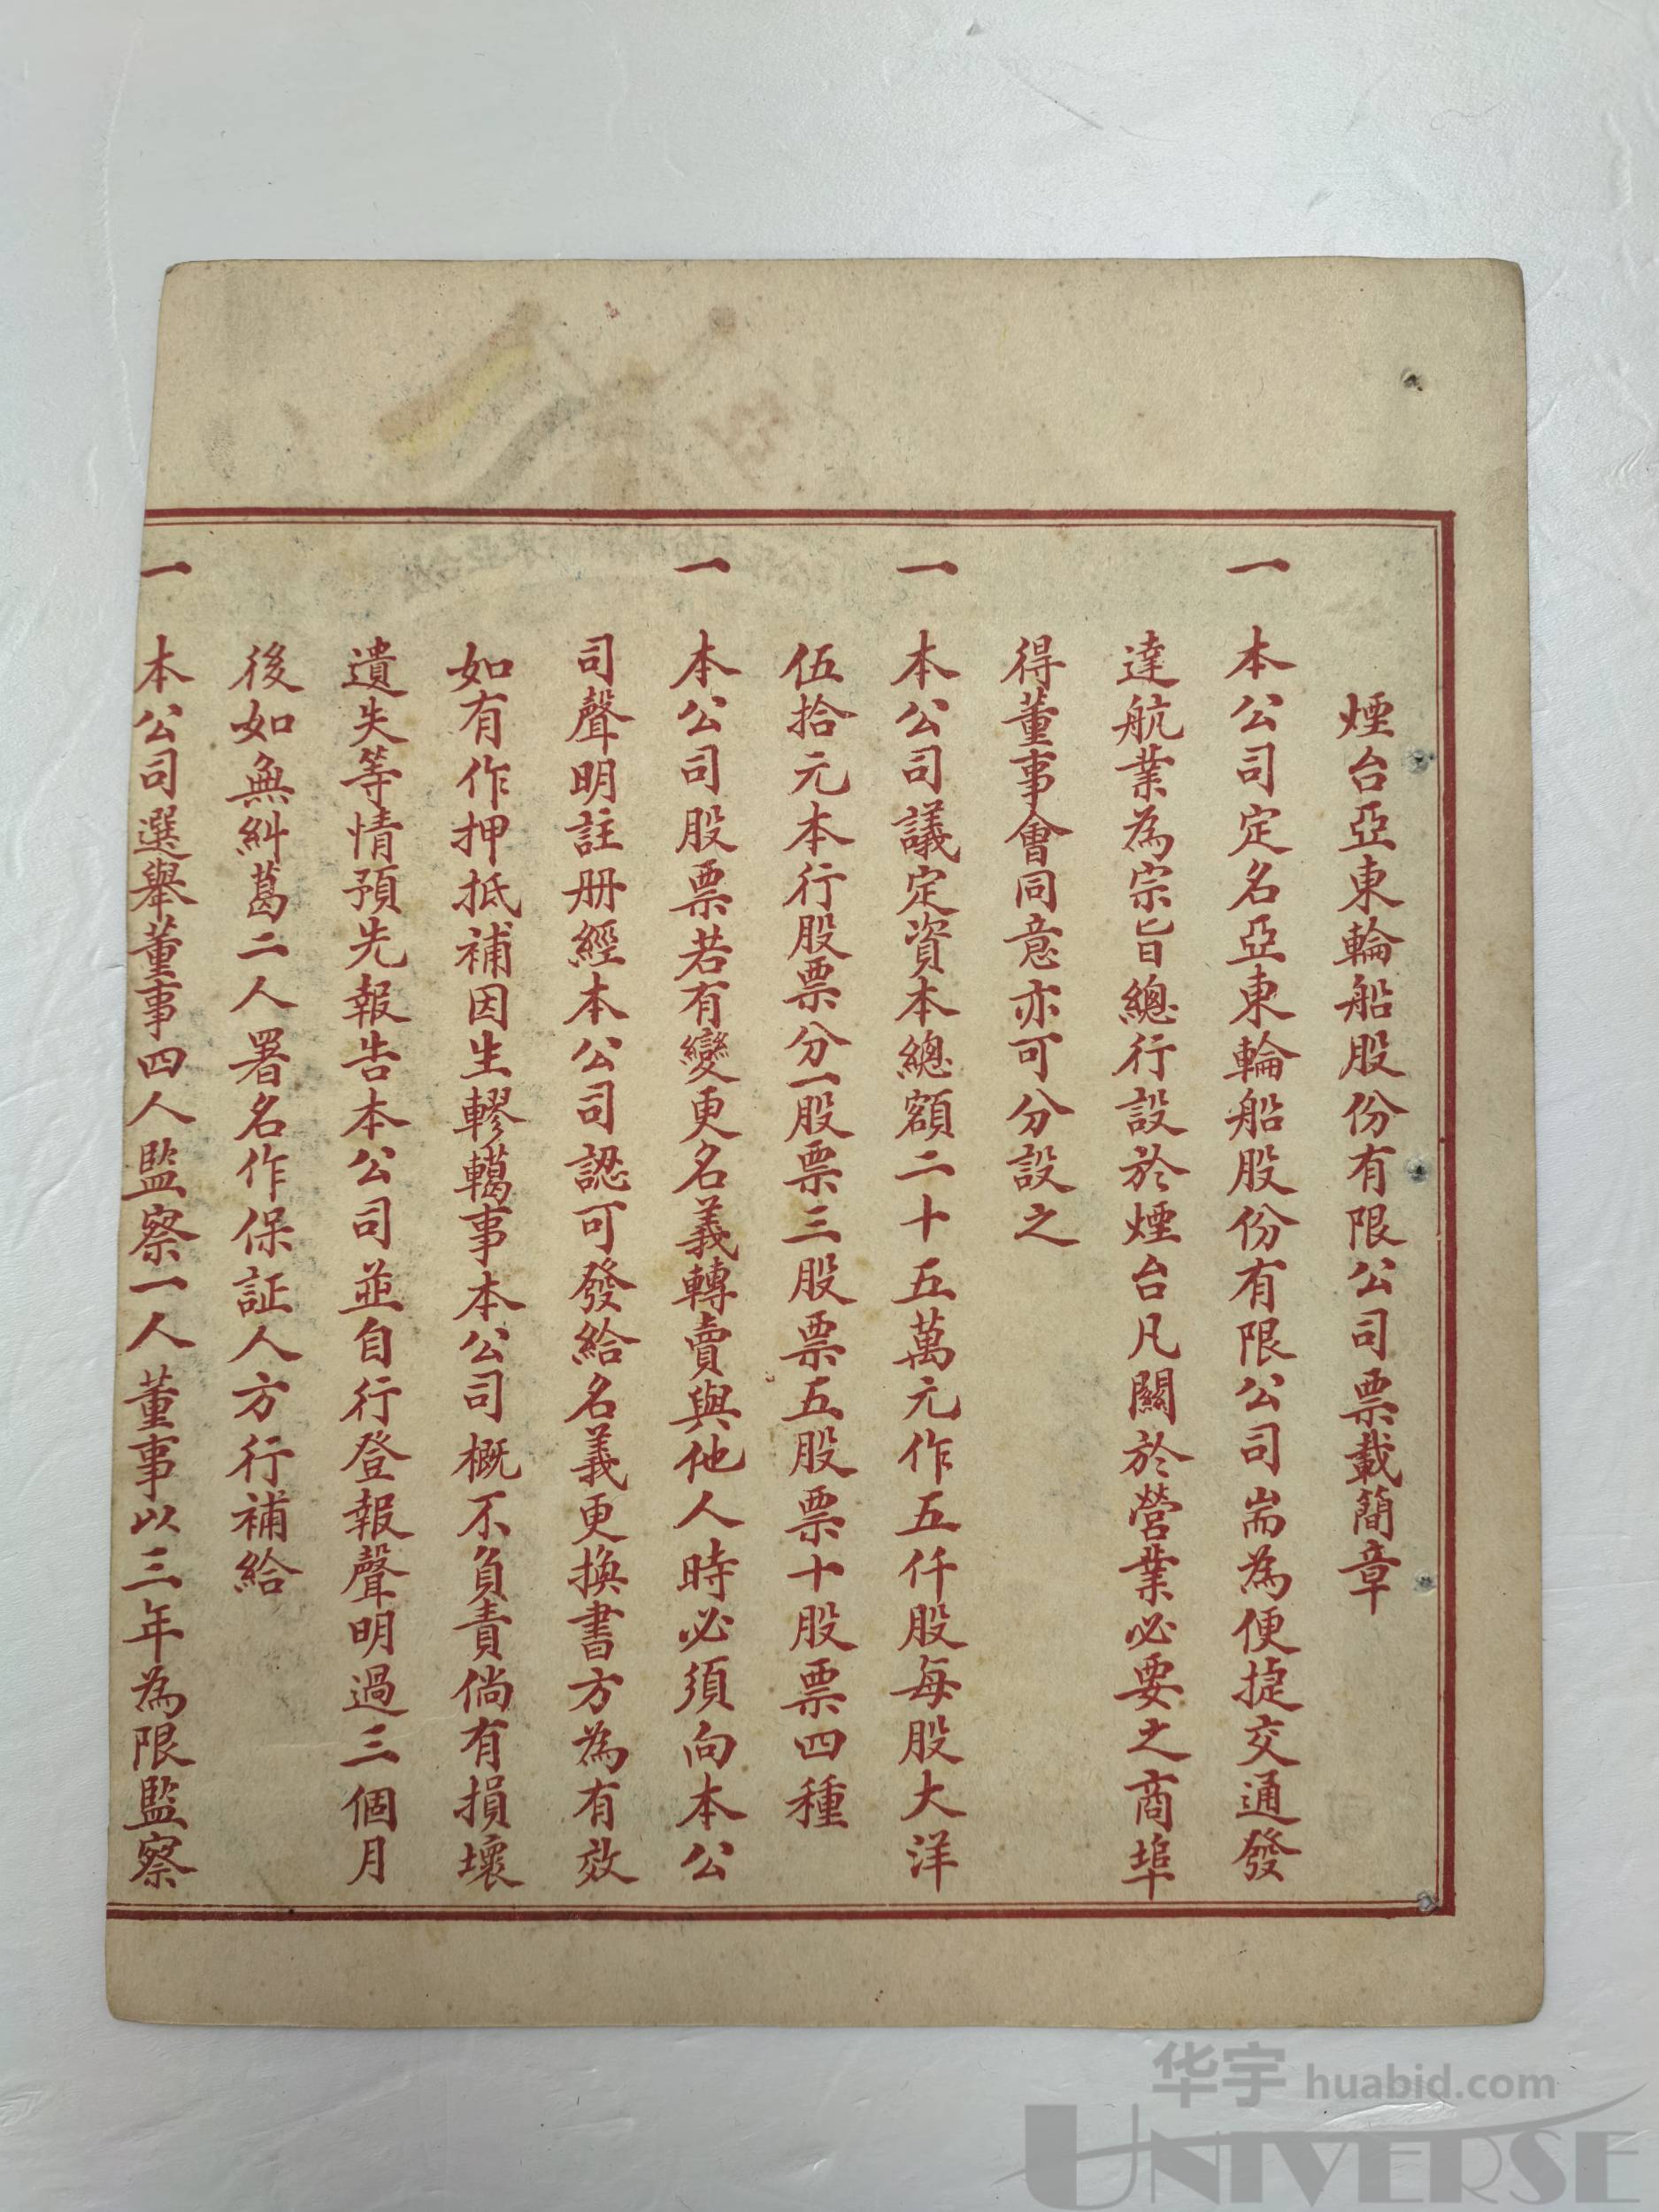 煙台亞東輪船股份有限公司票載簡章
一 本公司定名亞東輪船股份有限公司耑為便捷交通發
達航業為宗旨總行設於煙台凡關於營業必要之商埠
得董事會同意亦可分設之
一 本公司議定資本總額二十五萬元作五仟股每股大洋
伍拾元本行股票分一股票三股票五股票十股票四種
一 本公司股票若有變更名義轉賣與他人時必須向本公
司聲明註册經本公司認可發給名義更換書方為有效
如有作押抵補因生轇轕事本公司概不負責倘有損壞
遺失等情預先報告本公司並自行登報聲明過三個月
後如無糾葛二人署名作保証人方行補給
一 本公司選舉董事四人監察一人董事以三年為限監察
华宇 huabid.com
UNIVERSE